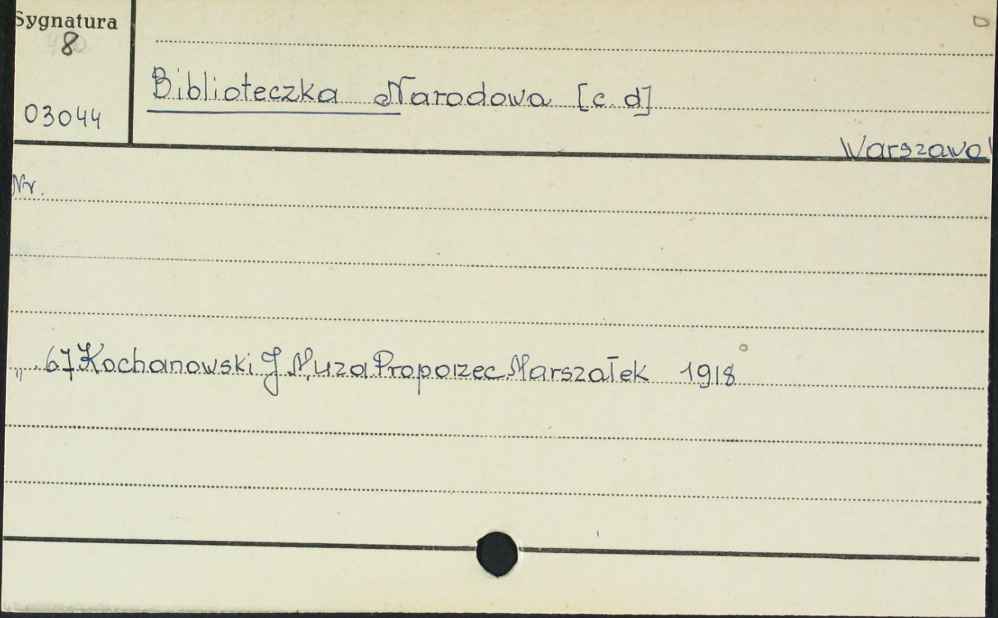 Sygnatura
8
Biblioteczka Narodowa [c. d]
03044
Warszawa
Nr.
„ 67 Kochanowski J Muza Proporzec Marszałek 1918